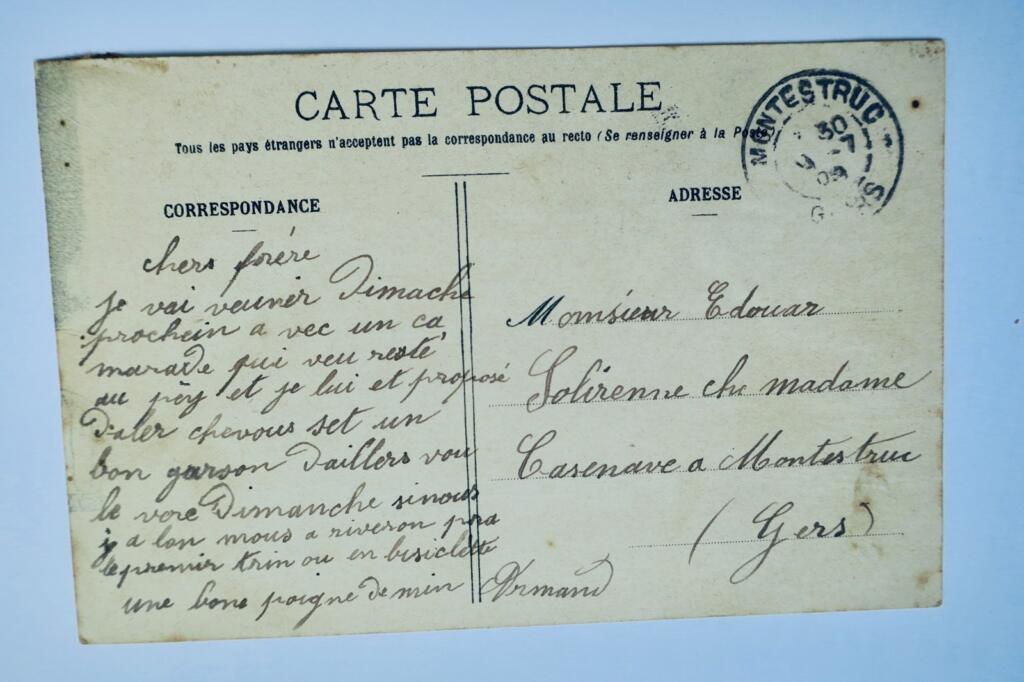 CARTE POSTALE
Tous les pays étrangers n'acceptent pas la correspondance au recto (Se renseigner à la Poste)
MONTESTRUC
30
7
09
GERS
CORRESPONDANCE
ADRESSE
chers frére
je vai veuner Dimache
prochein a vec un ca
marade qui veu resté
au péy et je lui et proposé
D'aler chevous set un
bon garson D'aillers vou
le vere Dimanche sinous
y a lon nous a riveron
le premir trin ou en bisiclette
une bone poigne De min Armand
Monsieur Edouar
Solirenne che madame
Casenave a Montestruc
(Gers)